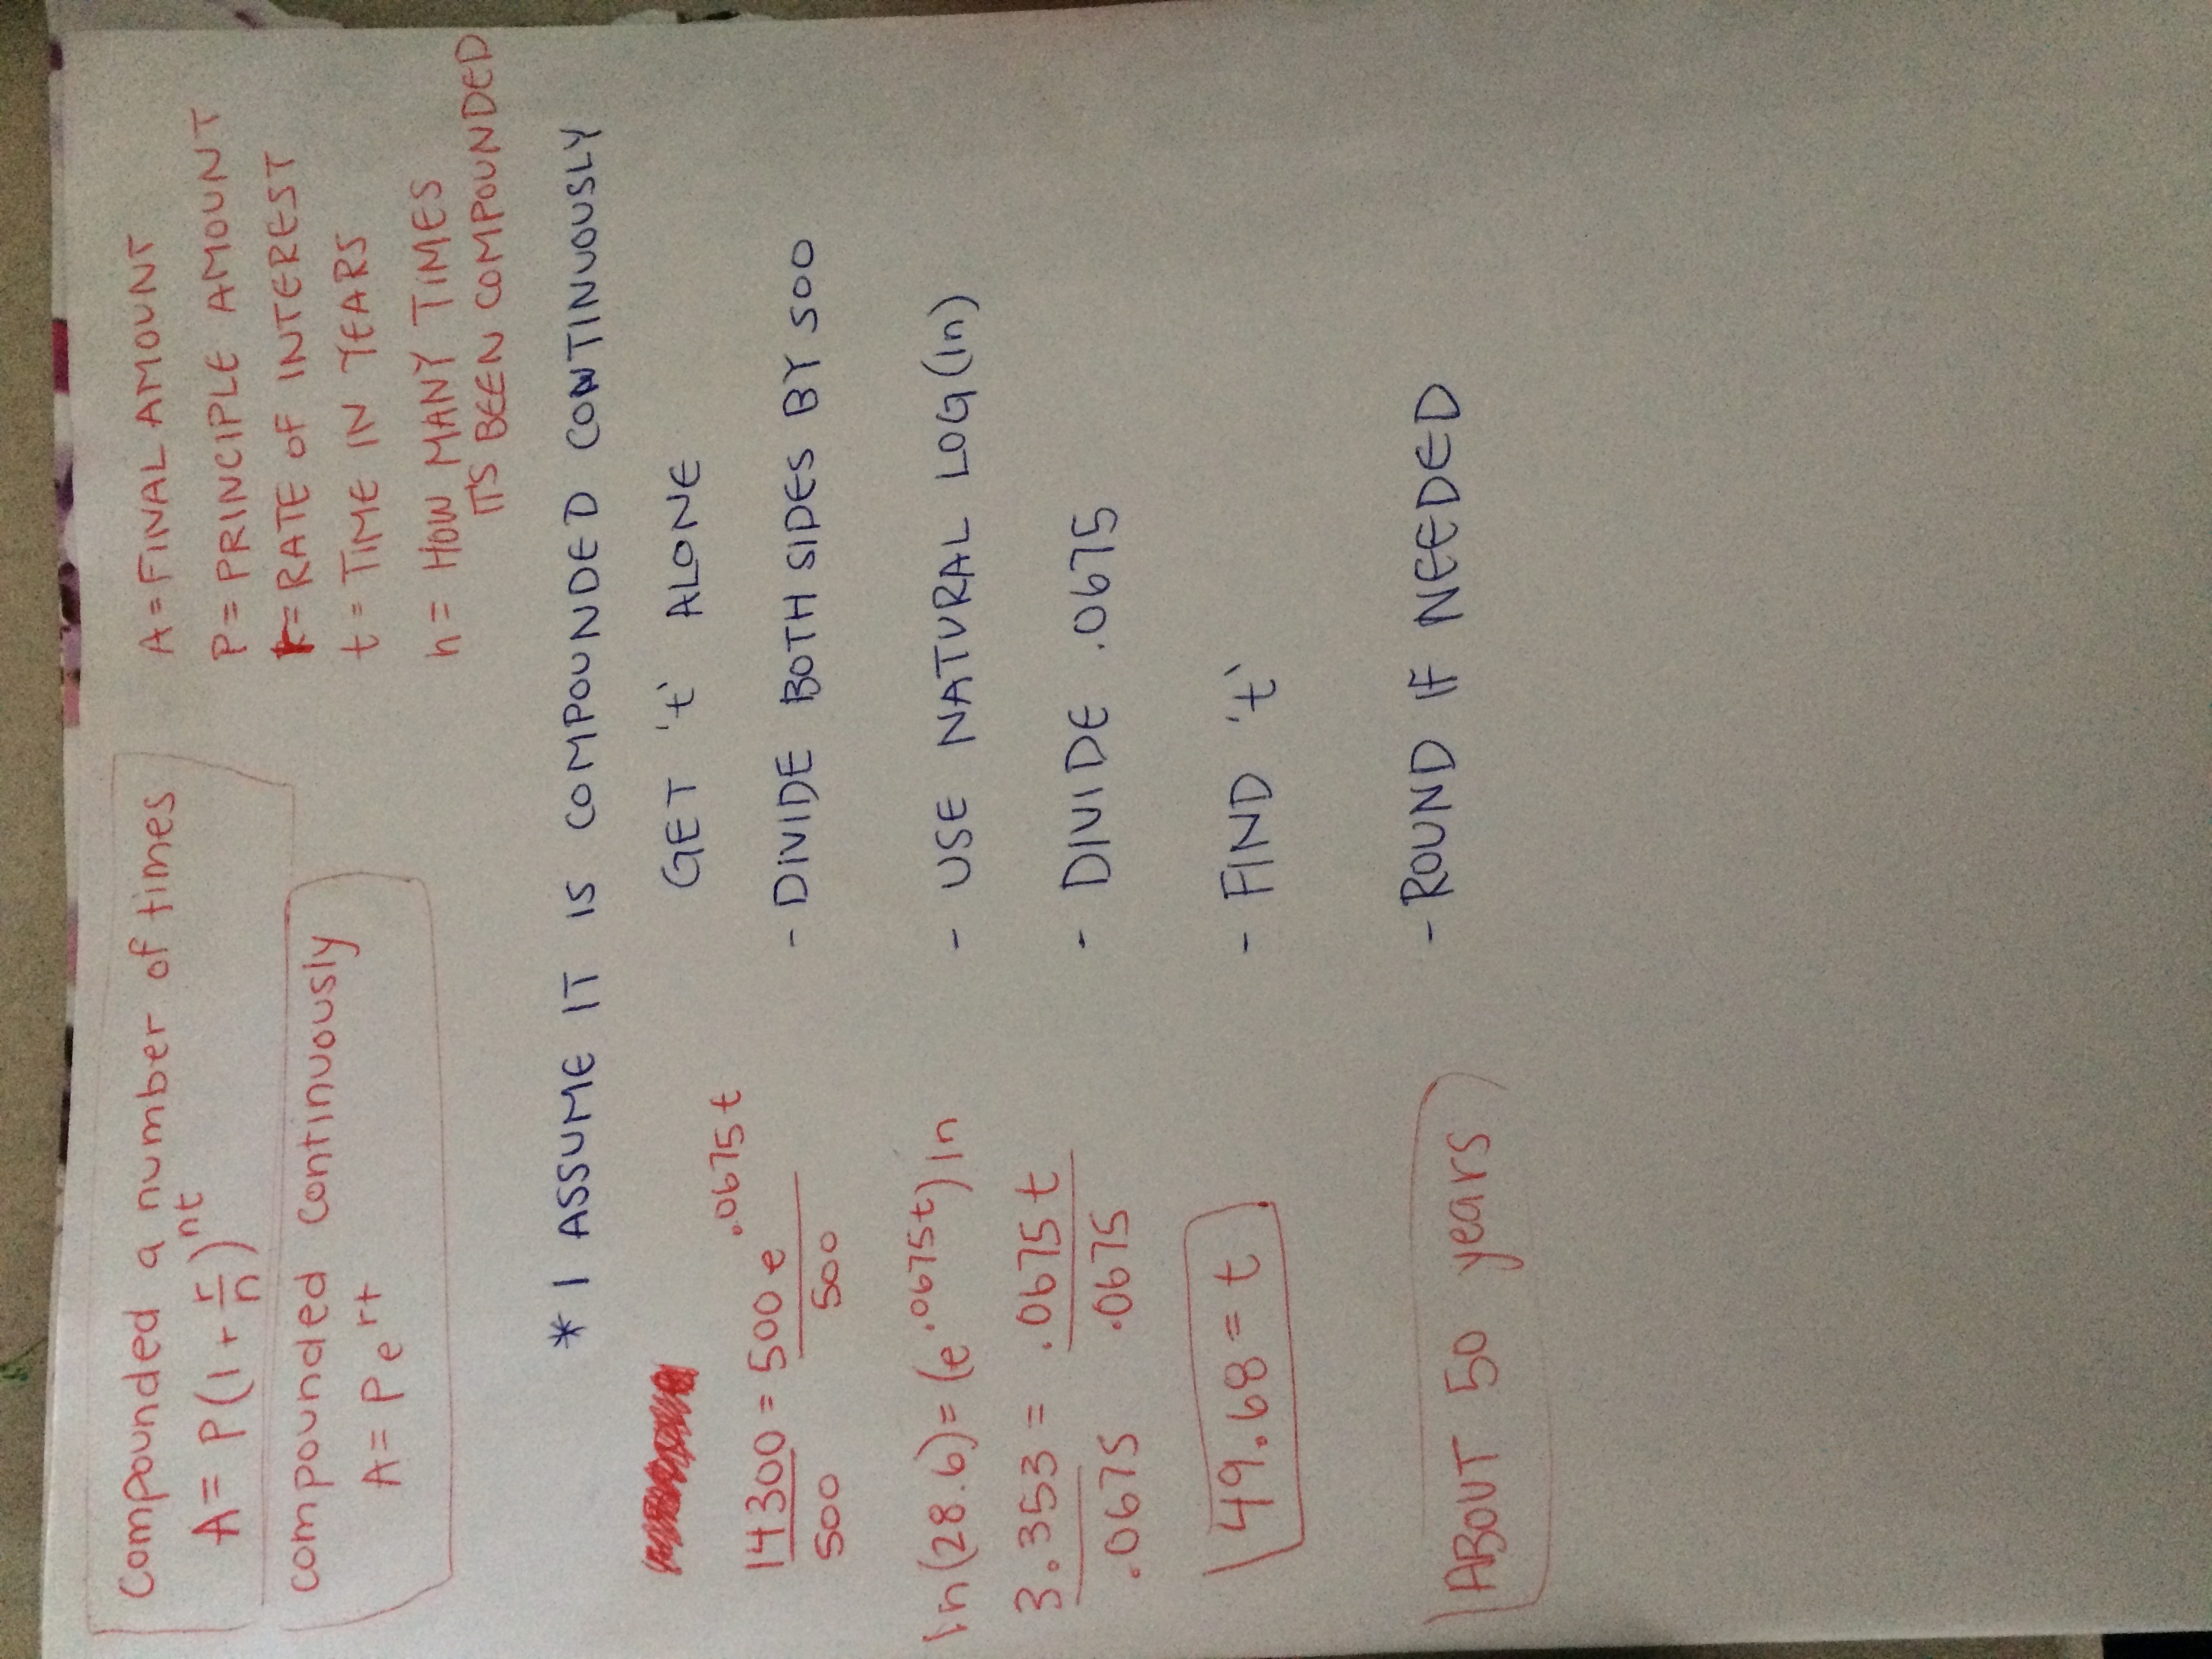 Compounded a number of times
A = P(1 + r/n)^nt
compounded continuously
A = Pe^rt
A = FINAL AMOUNT
P = PRINCIPLE AMOUNT
r = RATE OF INTEREST
t = TIME IN YEARS
n = HOW MANY TIMES
IT'S BEEN COMPOUNDED
* I ASSUME IT IS COMPOUNDED CONTINUOUSLY
GET 't' ALONE
14300/500 = 500e^.0675t/500
- DIVIDE BOTH SIDES BY 500
ln(28.6) = (e^.0675t) ln
- USE NATURAL LOG (ln)
3.353/.0675 = .0675t/.0675
- DIVIDE .0675
49.68 = t
- FIND 't'
ABOUT 50 years
- ROUND IF NEEDED